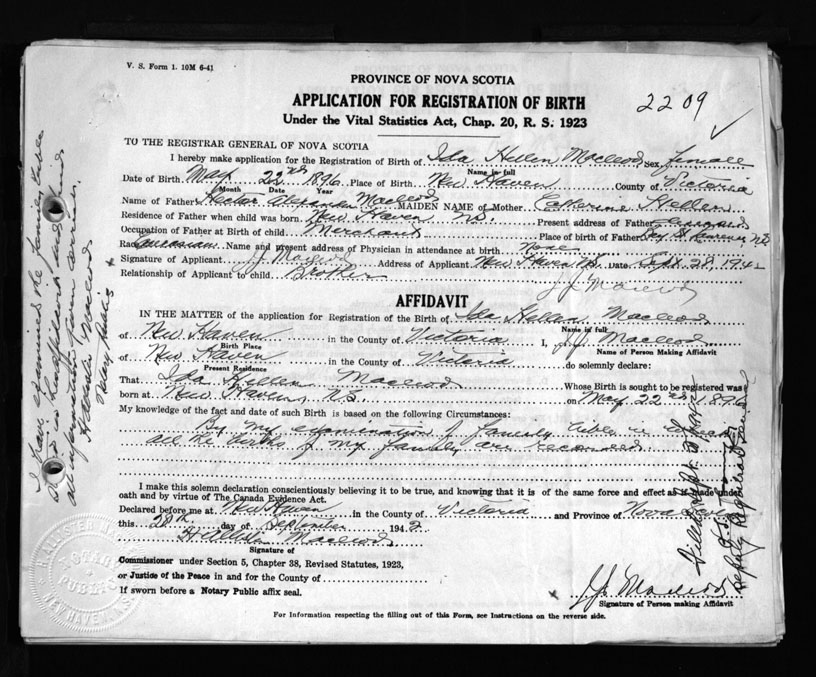 V. S. Form 1. 10M 6-41
PROVINCE OF NOVA SCOTIA
APPLICATION FOR REGISTRATION OF BIRTH
2209
Under the Vital Statistics Act, Chap. 20, R. S. 1923
TO THE REGISTRAR GENERAL OF NOVA SCOTIA
I hereby make application for the Registration of Birth of Ida Hellen Macleod Sex female
Name in full
Date of Birth May 22nd 1896 Place of Birth New Haven County of Victoria
Month Date Year
Name of Father Hector Alexander Macleod MAIDEN NAME of Mother Catherine Hellen
Residence of Father when child was born New Haven N.S. Present address of Father
Occupation of Father at Birth of child Merchant Place of birth of Father Bay St Lawrence NS
Race Name and present address of Physician in attendance at birth None
Signature of Applicant J.J. Macleod Address of Applicant New Haven N.S. Date Sept. 28, 1942
Relationship of Applicant to child Brother J J Macleod
AFFIDAVIT
IN THE MATTER of the application for Registration of the Birth of Ida Hellen Macleod
Name in full
of New Haven in the County of Victoria I, J.J. Macleod
Birth Place Name of Person Making Affidavit
of New Haven in the County of Victoria do solemnly declare:
Present Residence
That Ida Hellen Macleod Whose Birth is sought to be registered was
born at New Haven, N.S. on May 22nd 1896
My knowledge of the fact and date of such Birth is based on the following Circumstances:
By my examination of family bible in which
all the births of my family are recorded.
I make this solemn declaration conscientiously believing it to be true, and knowing that it is of the same force and effect as if made under
oath and by virtue of The Canada Evidence Act.
Declared before me at New Haven in the County of Victoria and Province of Nova Scotia
this 28th day of September 1942
H Allister Macleod
Signature of
Commissioner under Section 5, Chapter 38, Revised Statutes, 1923,
or Justice of the Peace in and for the County of
If sworn before a Notary Public affix seal.
J.J. Macleod
Signature of Person making Affidavit
For Information respecting the filling out of this Form, see Instructions on the reverse side.
I have examined the family bible
in this affidavit and find
above information from same.
H Allister Macleod
Notary Public
Deputy Registrar
NOTARY PUBLIC
NEW HAVEN, N.S.